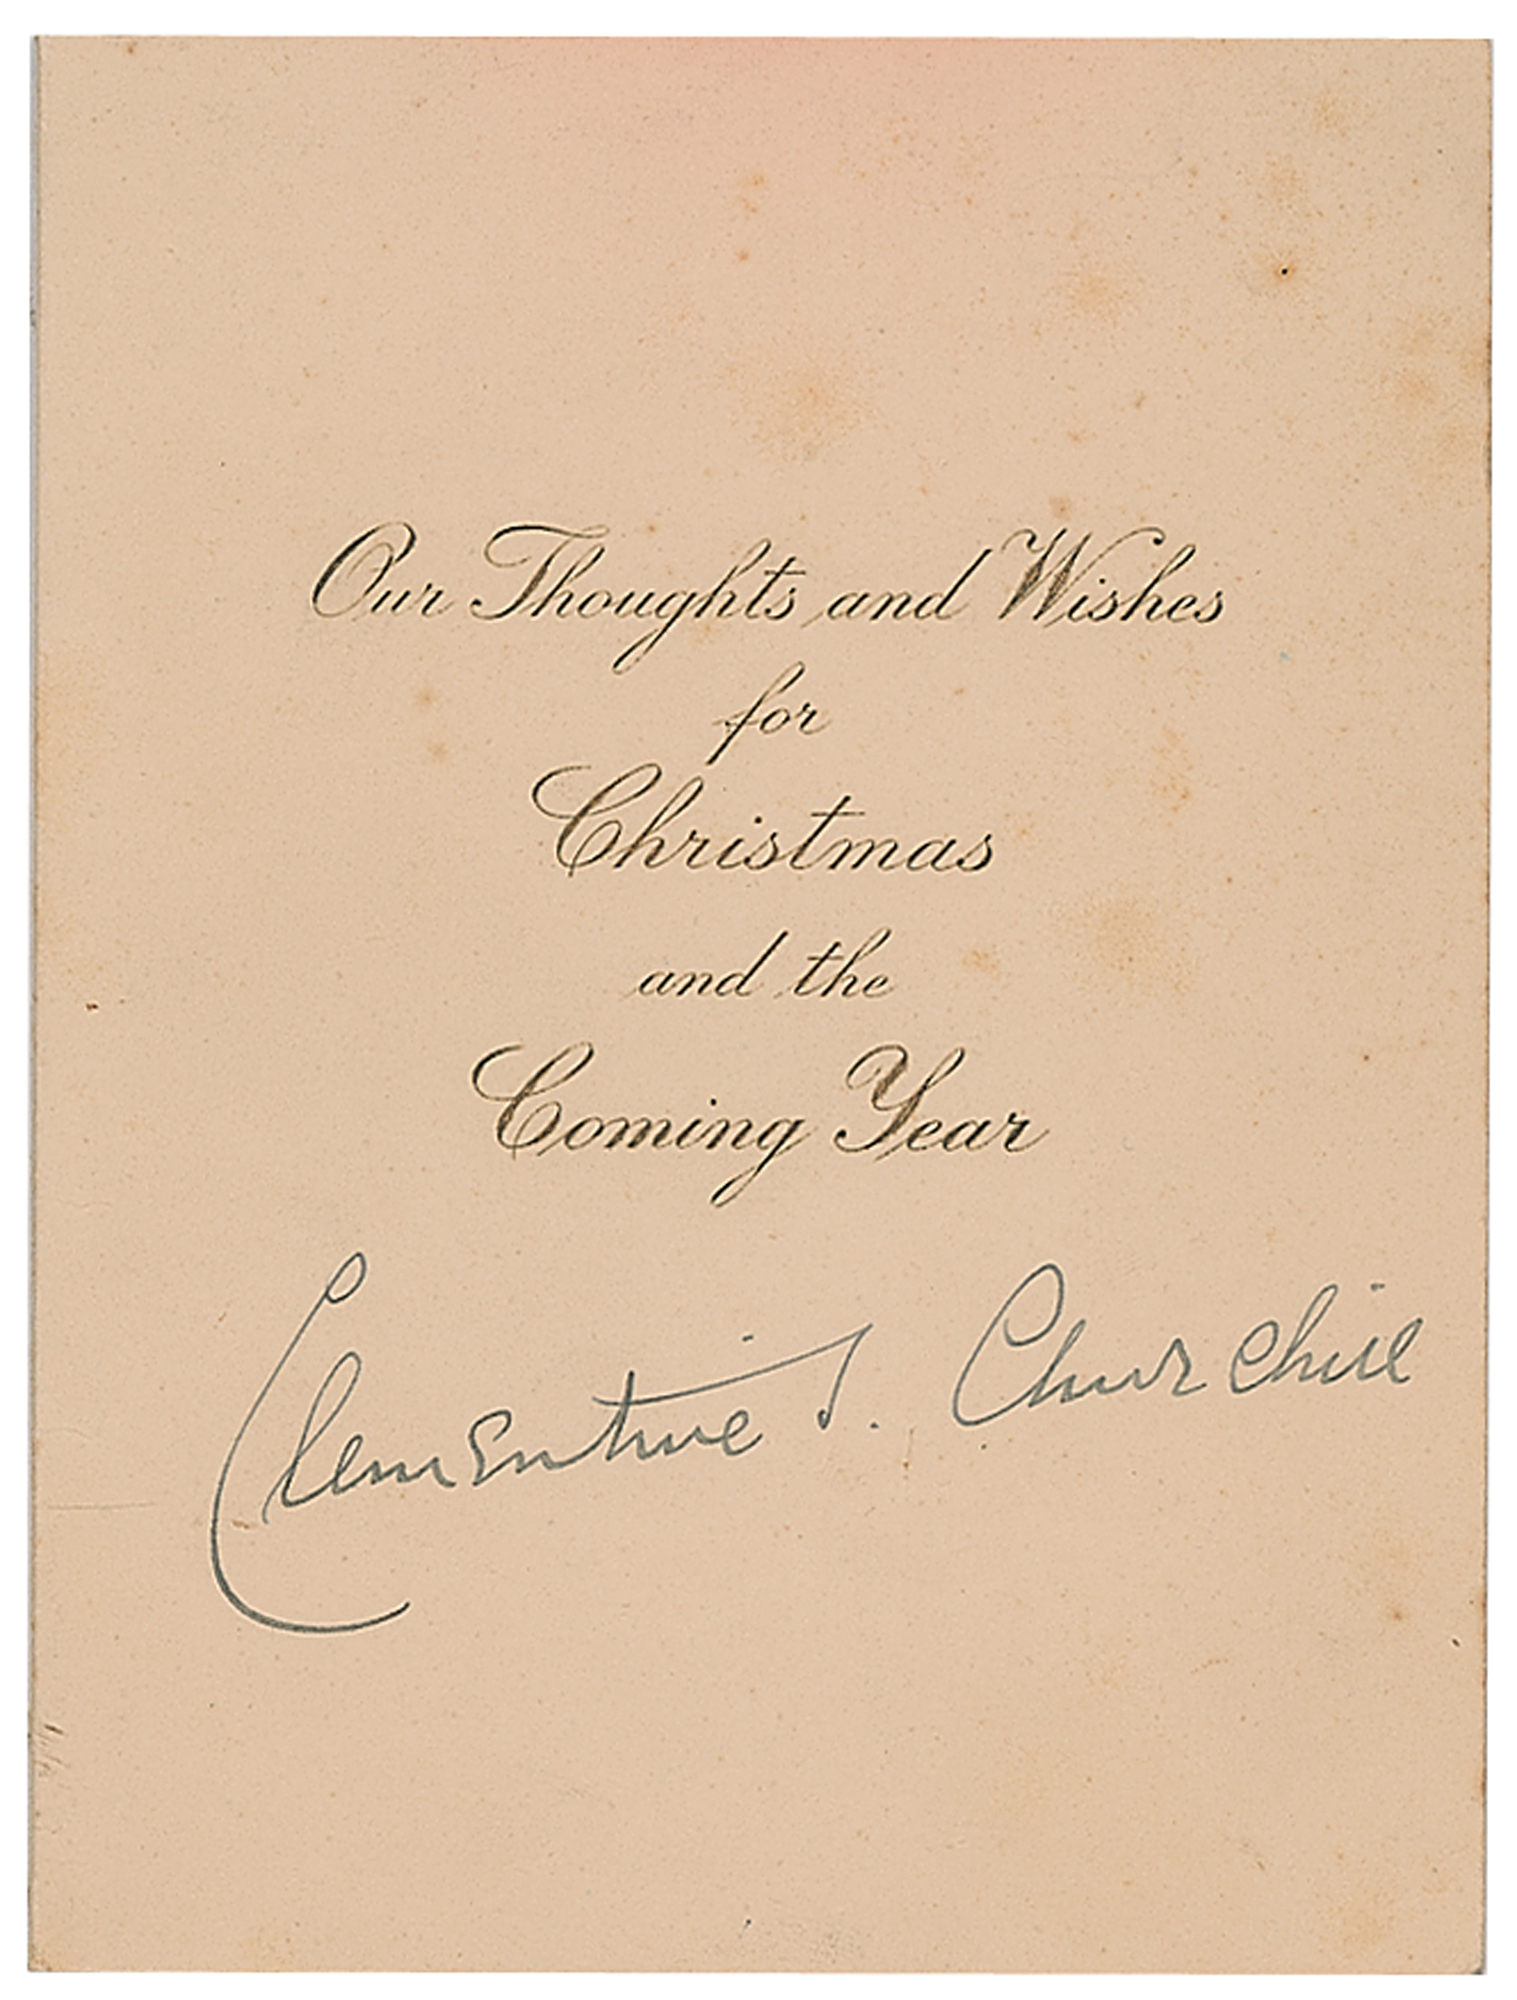 Our Thoughts and Wishes
for
Christmas
and the
Coming Year
Clementine S. Churchill